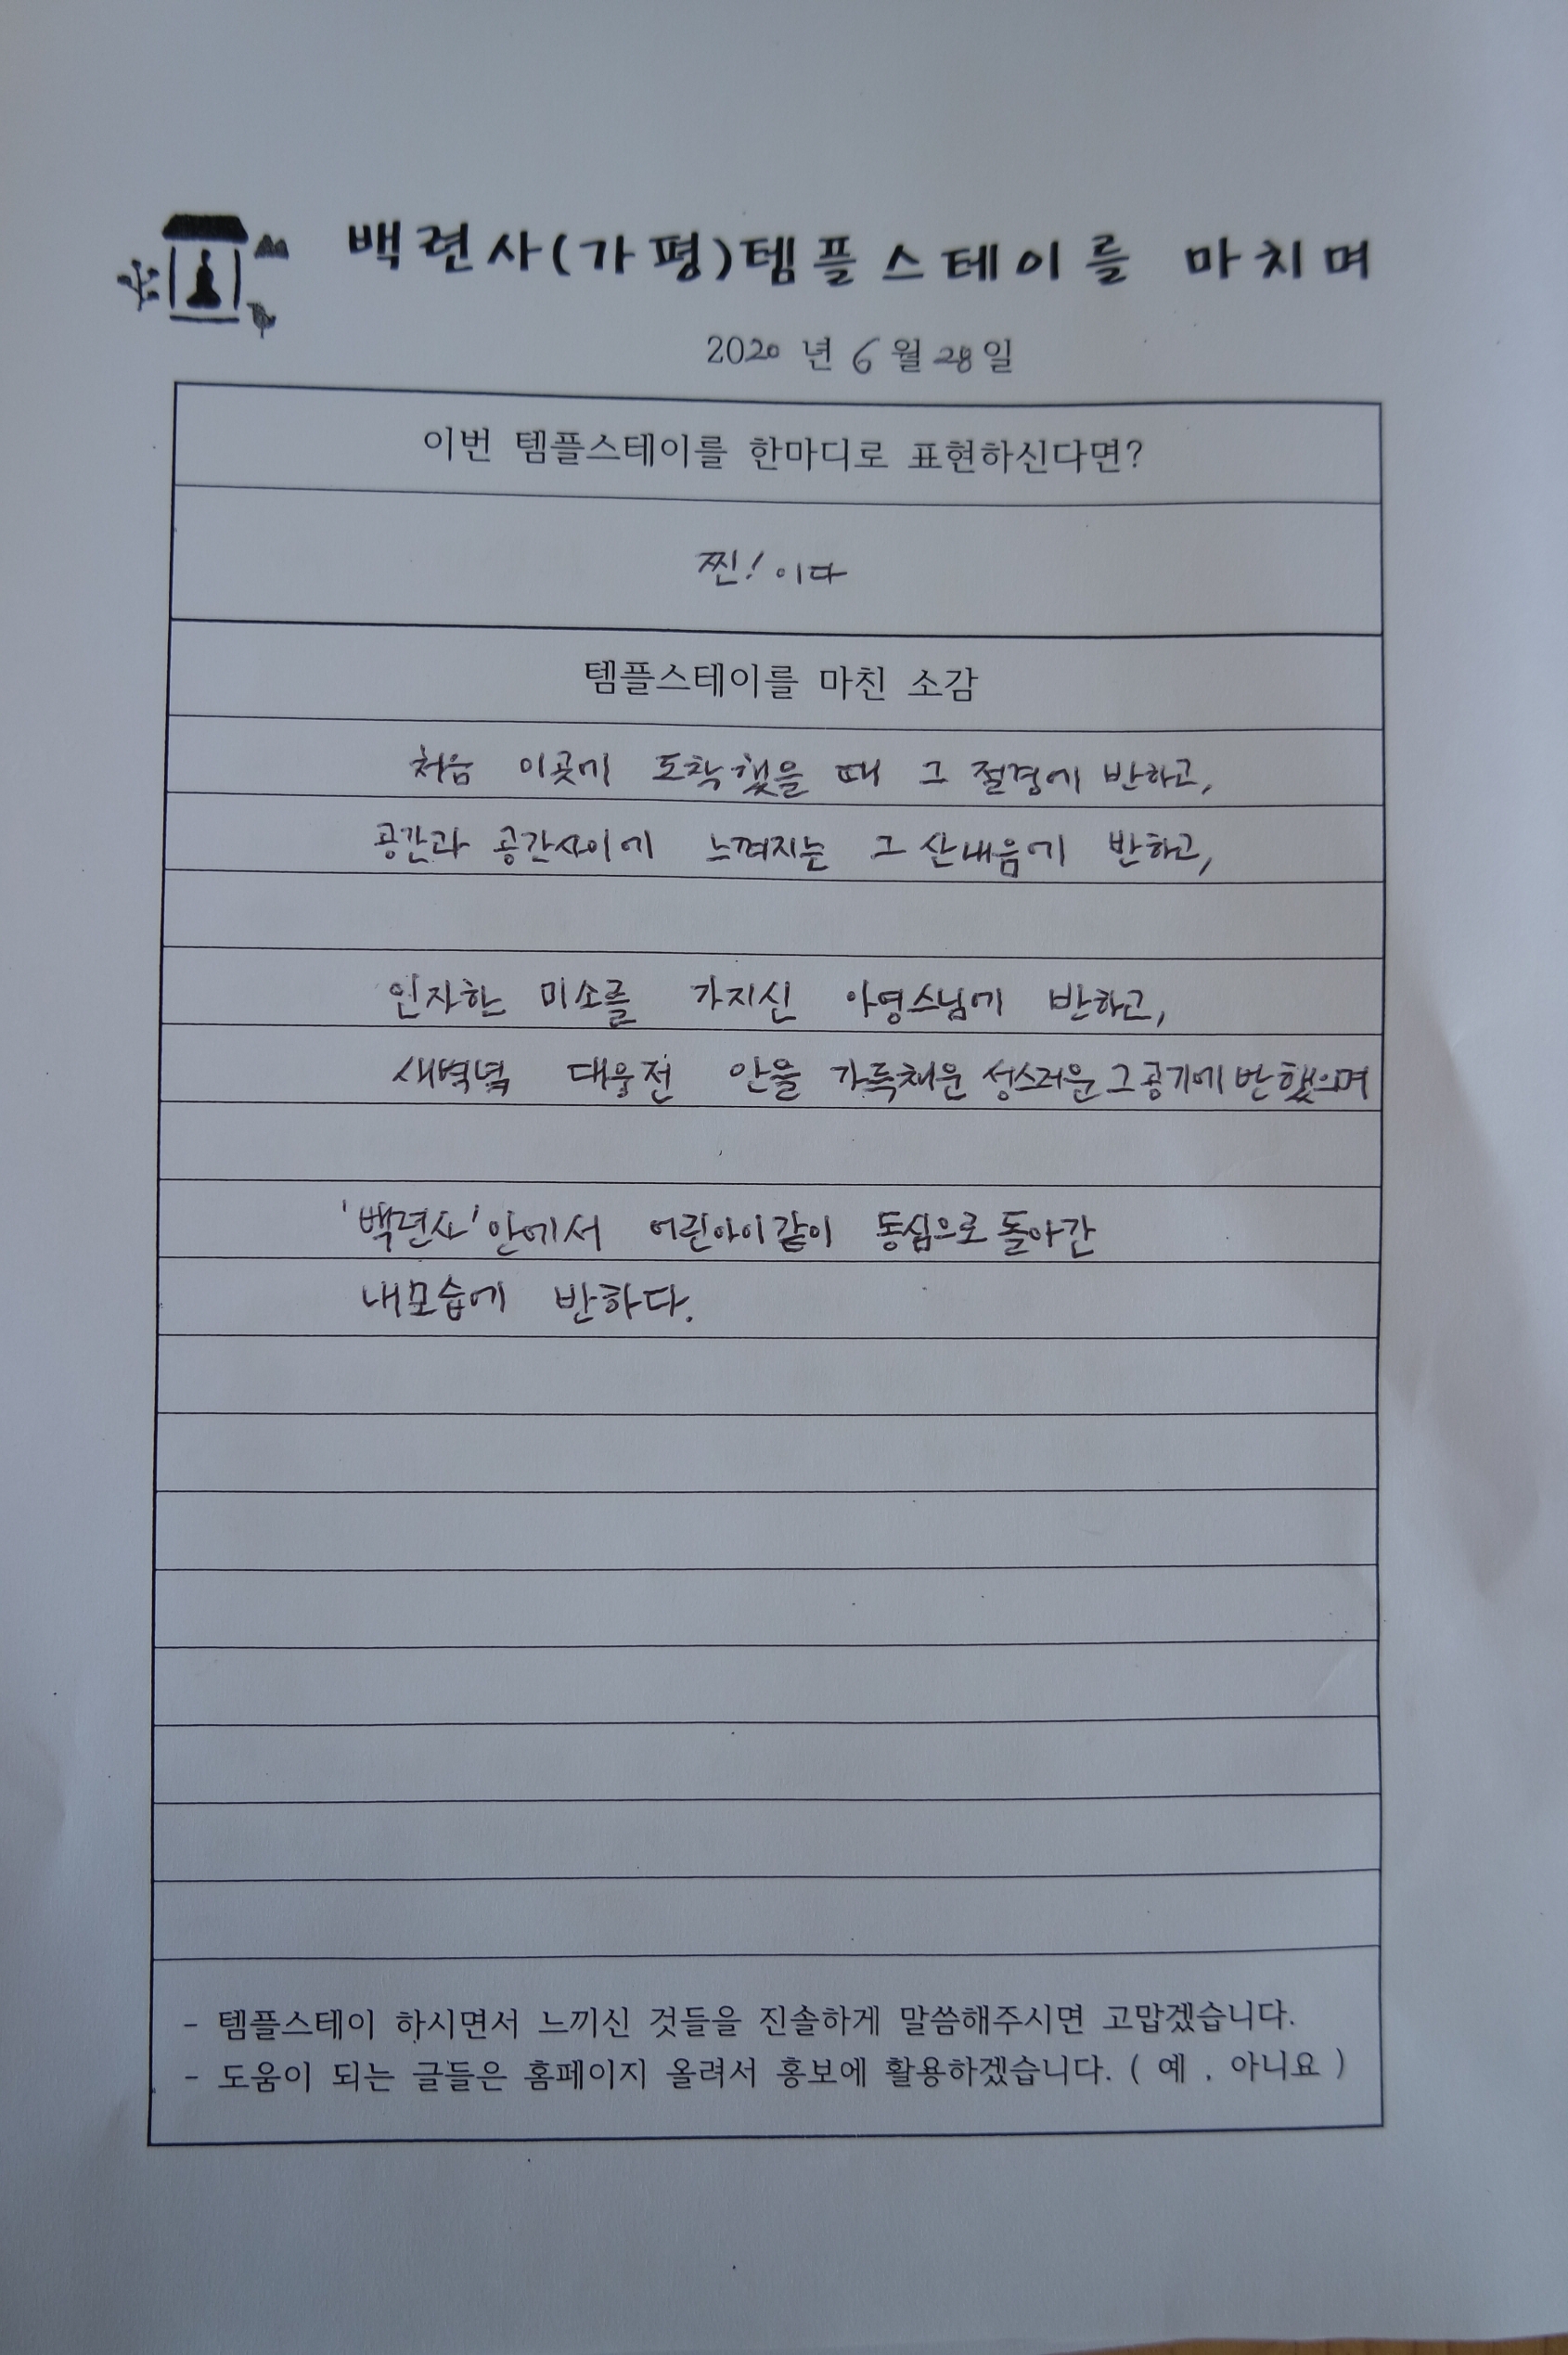 백련사(가평)템플스테이를 마치며
2020 년 6 월 28 일
이번 템플스테이를 한마디로 표현하신다면?
찐! 이다
템플스테이를 마친 소감
처음 이곳에 도착했을 때 그 절경에 반하고,
공간과 공간사이에 느껴지는 그 산내음에 반하고,
인자한 미소를 가지신 아영스님에 반하고,
새벽녘 대웅전 안을 가득채운 성스러운 그 공기에 반했으며
'백련사' 안에서 어린아이같이 동심으로 돌아간
내모습에 반하다.
- 템플스테이 하시면서 느끼신 것들을 진솔하게 말씀해주시면 고맙겠습니다.
- 도움이 되는 글들은 홈페이지 올려서 홍보에 활용하겠습니다. ( 예 , 아니요 )